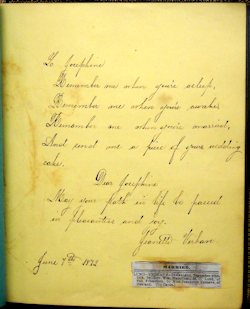 To Josephine
Remember me when you're asleep,
Remember me when you're awake
Remember me when you're married,
And send me a piece of your wedding
cake.
Dear Josephine
May your path in life be paved
in pleasantries and joy.
Jeanette
June 7th 1892
MARRIED.